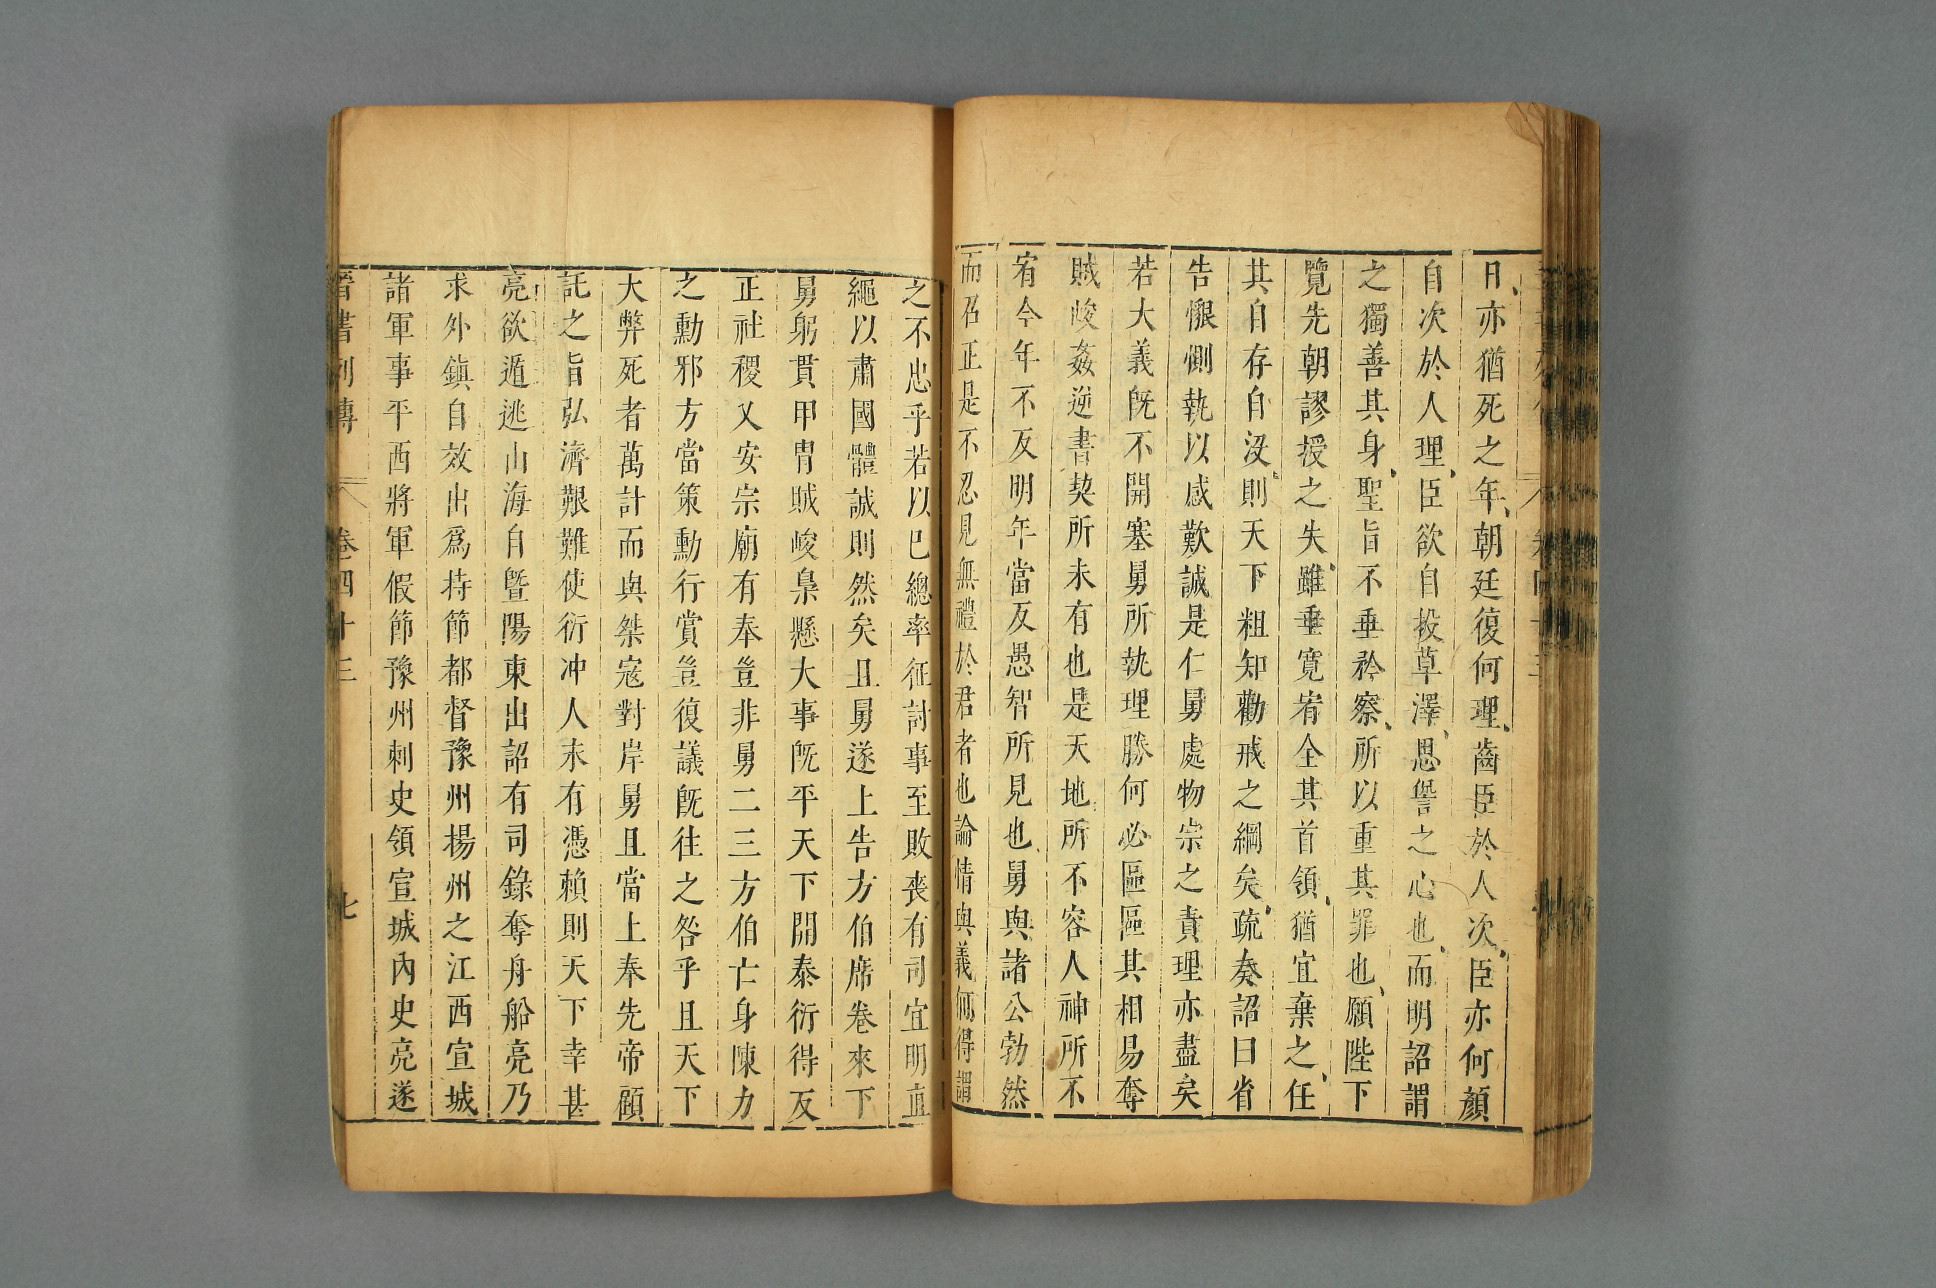 日亦猶死之年朝廷復何理齒臣於人次臣亦何顏
自次於人理臣欲自投草澤思諐之心也而明詔謂
之獨善其身聖旨不垂矜察所以重其罪也願陛下
覽先朝謬授之失雖垂寬宥全其首領猶宜棄之任
其自存自没則天下粗知勸戒之綱矣疏奏詔曰省
告懇惻執以感歎誠是仁舅處物宗之責理亦盡矣
若大義旣不開塞舅所執理勝何必區區其相易奪
賊峻姦逆書契所未有也是天地所不容人神所不
宥今年不反明年當反愚智所見也舅與諸公勃然
而召正是不忍見無禮於君者也論情與義何得謂
之不忠乎若以已總率征討事至敗喪有司宜明直
繩以肅國體誠則然矣且舅遂上告方伯席卷來下
舅躬貫甲冑賊峻梟懸大事旣平天下開泰衍得反
正社稷乂安宗廟有奉豈非舅二三方伯亡身陳力
之勳邪方當策勳行賞豈復議旣往之咎乎且天下
大弊死者萬計而與桀寇對岸舅且當上奉先帝顧
託之旨弘濟艱難使衍冲人永有憑賴則天下幸甚
亮欲遁逃山海自暨陽東出詔有司錄奪舟船亮乃
求外鎮自效出爲持節都督豫州揚州之江西宣城
諸軍事平西將軍假節豫州刺史領宣城內史亮遂
晉書列傳 卷四十三 七